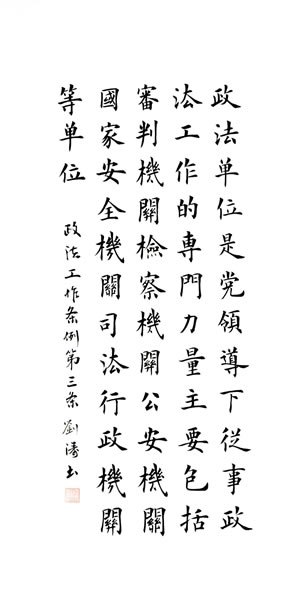 政法单位是党領導下從事政
法工作的専門力量主要包括
審判機關檢察機關公安機關
國家安全機關司法行政機關
等单位
政法工作条例第三条劉濤书